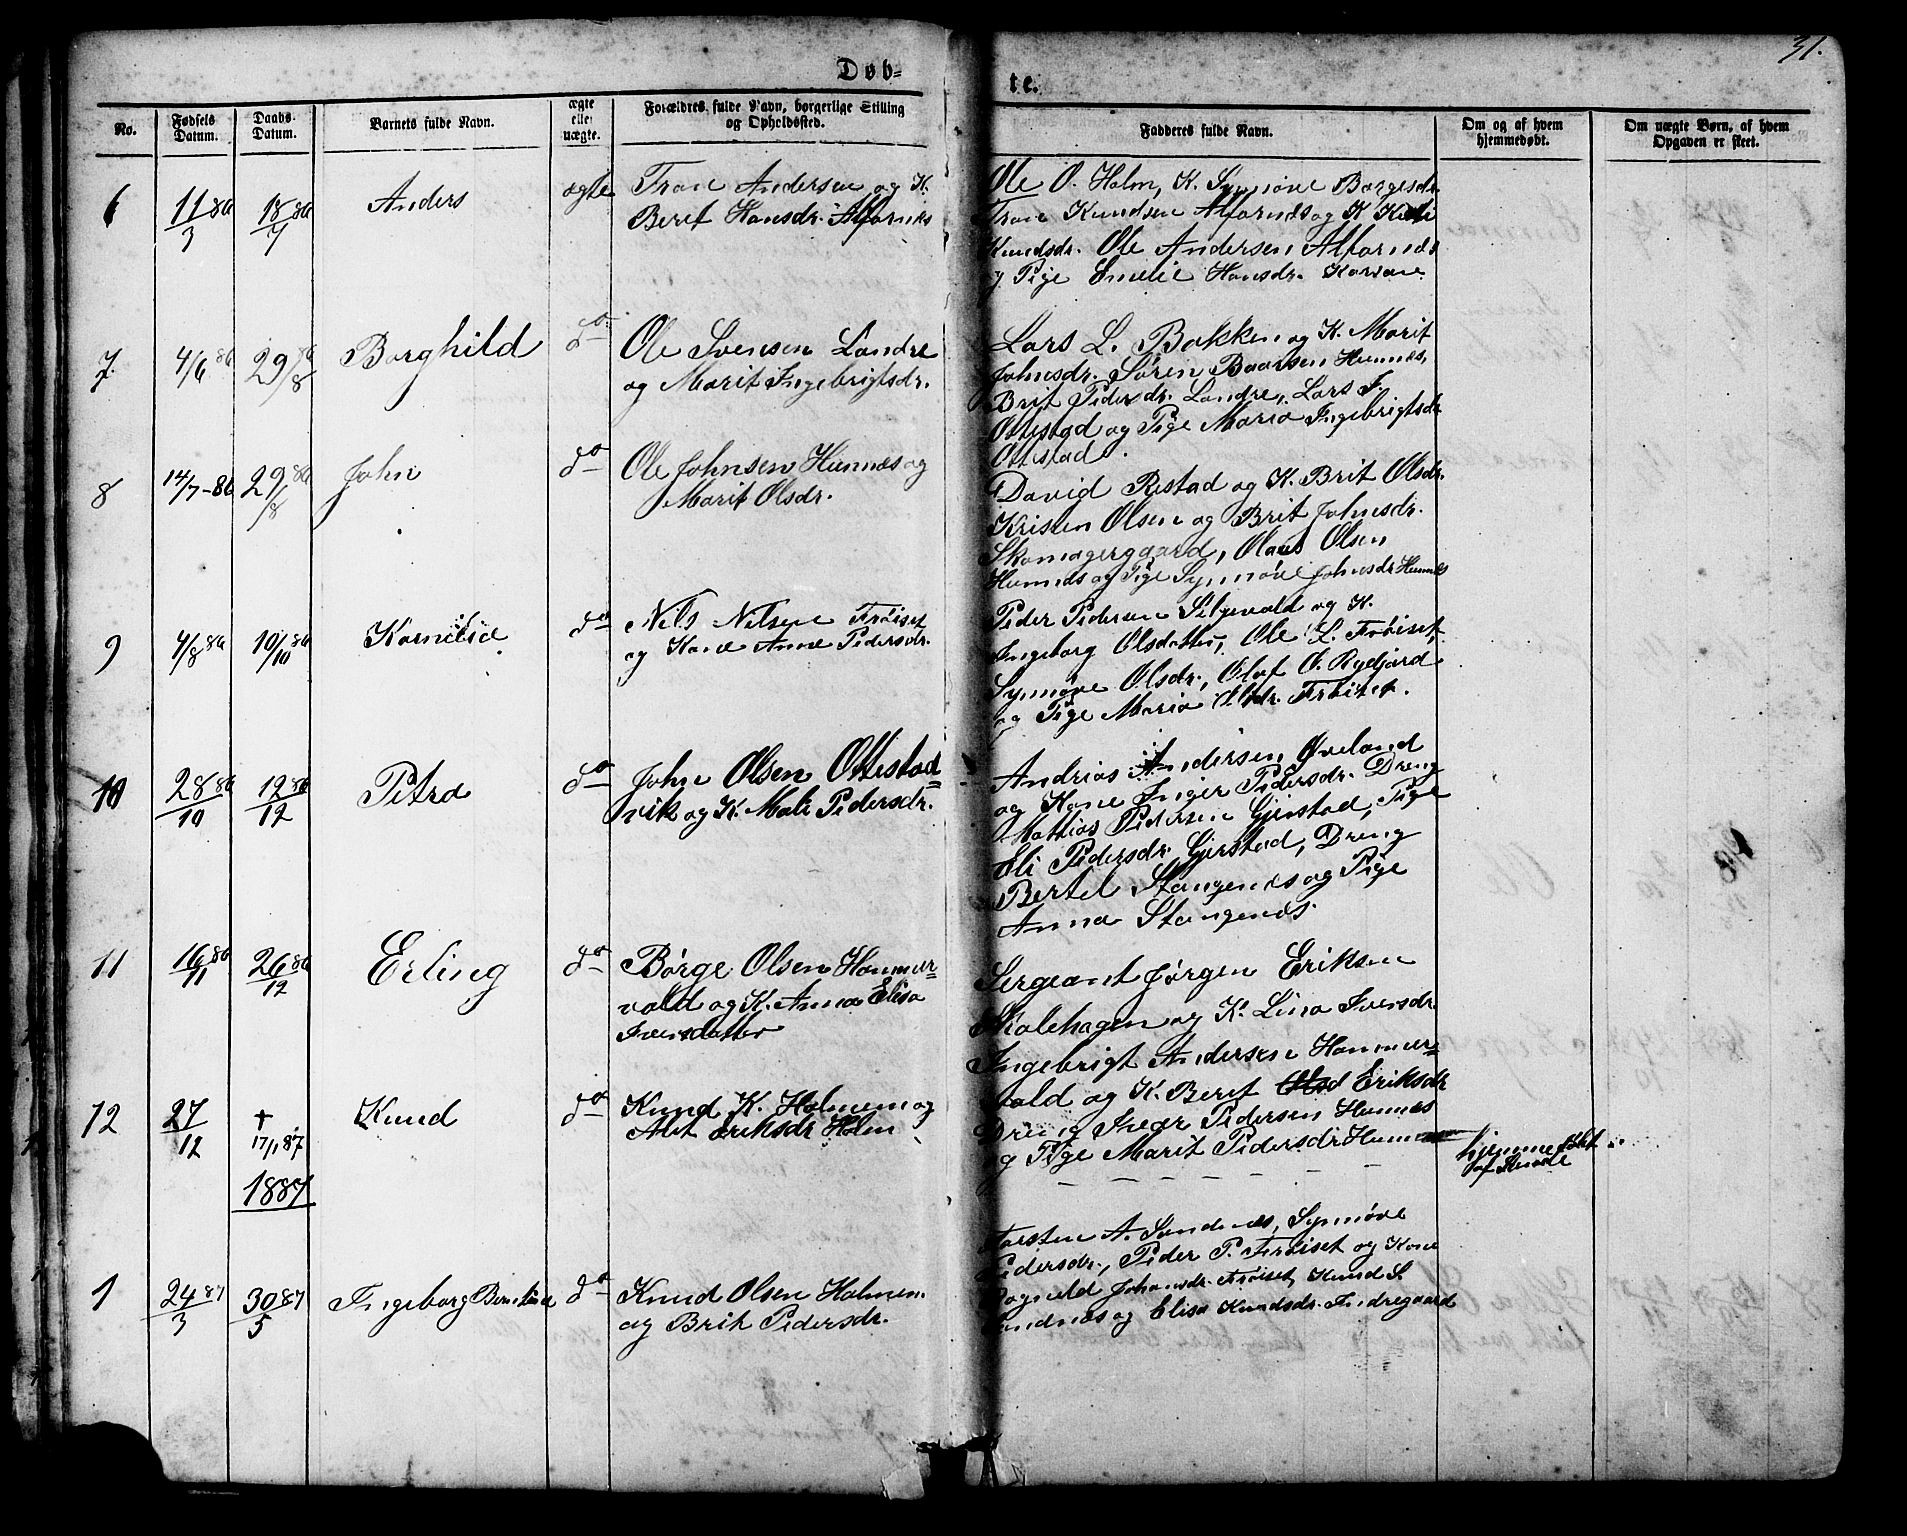 31.
Døb=
te.
No.
Fødsels Datum.
Daabs Datum.
Barnets fulde Navn.
ægte eller uægte.
Forældres fulde Navn, borgerlige Stilling og Opholdssted.
Fadderes fulde Navn.
Om og af hvem hjemmedøbt.
Om uægte Børn, af hvem Opgaven er skeet.
6
11/3 86
18/4 86
Anders
ægte
Tron Andersen og K.
Berit Hansdr. Alfarnes
Ole O. Holm, K. Synnøve Borgesdr.
Tron Knudsen Alfarnæs og K
Knudsdr. Ole Andersen Alfarnæs
og Pige Emelie Hansdr.
7.
4/6 86
29/8 86
Borghild
do
Ole Svensen Landre
og Marit Ingebrigtsdr.
Lars L. Bakken og K. Marit
Johnsdr. Søren Baarsen Hunnæs,
Brit Pedersdr. Landre, Lars J.
Ottestad og Pige Maria Ingebrigtsdr.
Ottestad.
8
14/7-86
29/8 86
John
do
Ole Johnsen Hunnæs og
Marit Olsdr.
David Ristad og K. Brit Olsdr.
Kristen Olsen og Brit Johnsdr.
Skomagergaard, Olaus Olsen
Hunnæs og Pige Synnøve Johnsdr Hunnæs
9
4/8 86
10/10 86
Kornelia
do
Nils Nilsen Frøiset
og Kone Anne Pedersdr.
Peder Pedersen Seljevold og K.
Ingeborg Olsdatter, Ole L. Frøiset,
Synnøve Olsdr., Olaf O. Rydjord
og Pige Maria Olsdr. Frøiset.
10
28/10 86
12/12 86
Petra
do
John Olsen Ottestad=
vik og K. Mali Pedersdr.
Andrias Andersen Øveland
og Kone Inger Pedersdr. Dreng
Mattias Pedersen Gjerstad, Pige
Eli Pedersdr. Gjerstad, Dreng
Bertel Stangenæs og Pige
Anna Stangenæs.
11
16/11 86
26/12 86
Erling
do
Børge Olsen Hammer=
vold og K. Anna Elisa
Iversdatter
Sergeant Jørgen Eriksen
Skolehagen og K. Lina Iversdr.
Ingebrigt Andersen Hammer=
vold og K. Berit Eriksdr
Dreng Iver Pedersen Hunnæs
og Pige Marit Pedersdr Hunnæs
12
27/12
† 17/1 87
Knud
do
Knud K. Holmem og
Alet Eriksdr Holm
— — — — — —
hjemmedøbt
af
1887
1
24/3 87
30/5 87
Ingeborg Berntine
do
Knud Olsen Holmem
og Brit Pedersdr.
Torsten A. Sandnæs, Synnøve
Pedersdr., Peder P. Frøiset og Kone
Ragnild Johansdr. Frøiset, Knud S.
Sandnæs og Elisa Knudsdr. Indregaard